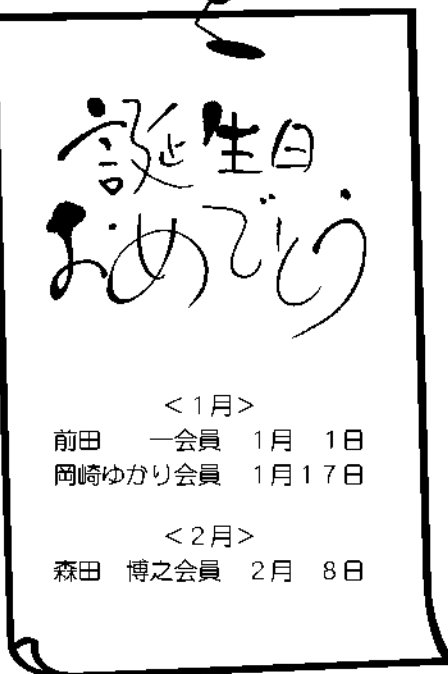 誕生日
おめでとう
＜１月＞
前田　　一会員　１月　１日
岡崎ゆかり会員　１月１７日
＜２月＞
森田　博之会員　２月　８日